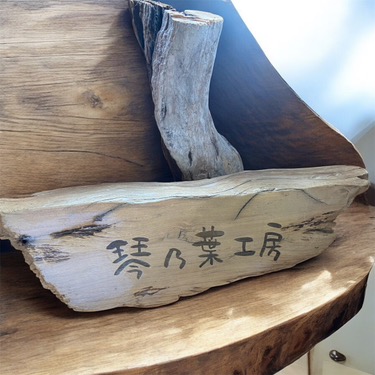 琴乃葉工房